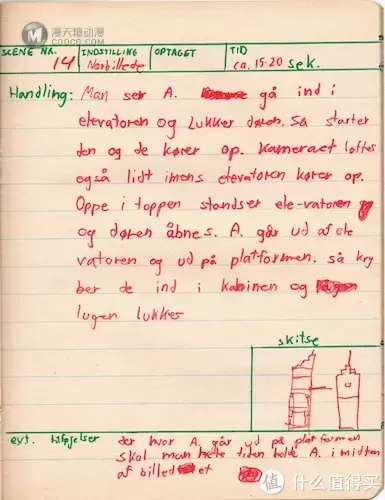 漫天糖动漫
COOCG.COM
SCENE NR. INDSTILLING OPTAGET TID
14 Nærbillede ca. 15-20 sek.
Handling: Man ser A. gå ind i
elevatoren og lukker døren. Så starter
den og de kører op. Kameraet løftes
også lidt imens elevatoren kører op.
Oppe i toppen standser ele-vatoren
og døren åbnes. A. går ud af ele
vatoren og ud på platformen. så kry
ber de ind i kabinen og
lugen lukker
skitse
evt. tilføjelser der hvor A. går ud på platformen
skal man hele tiden holde A. i midten
af billedet
值 什么值得买